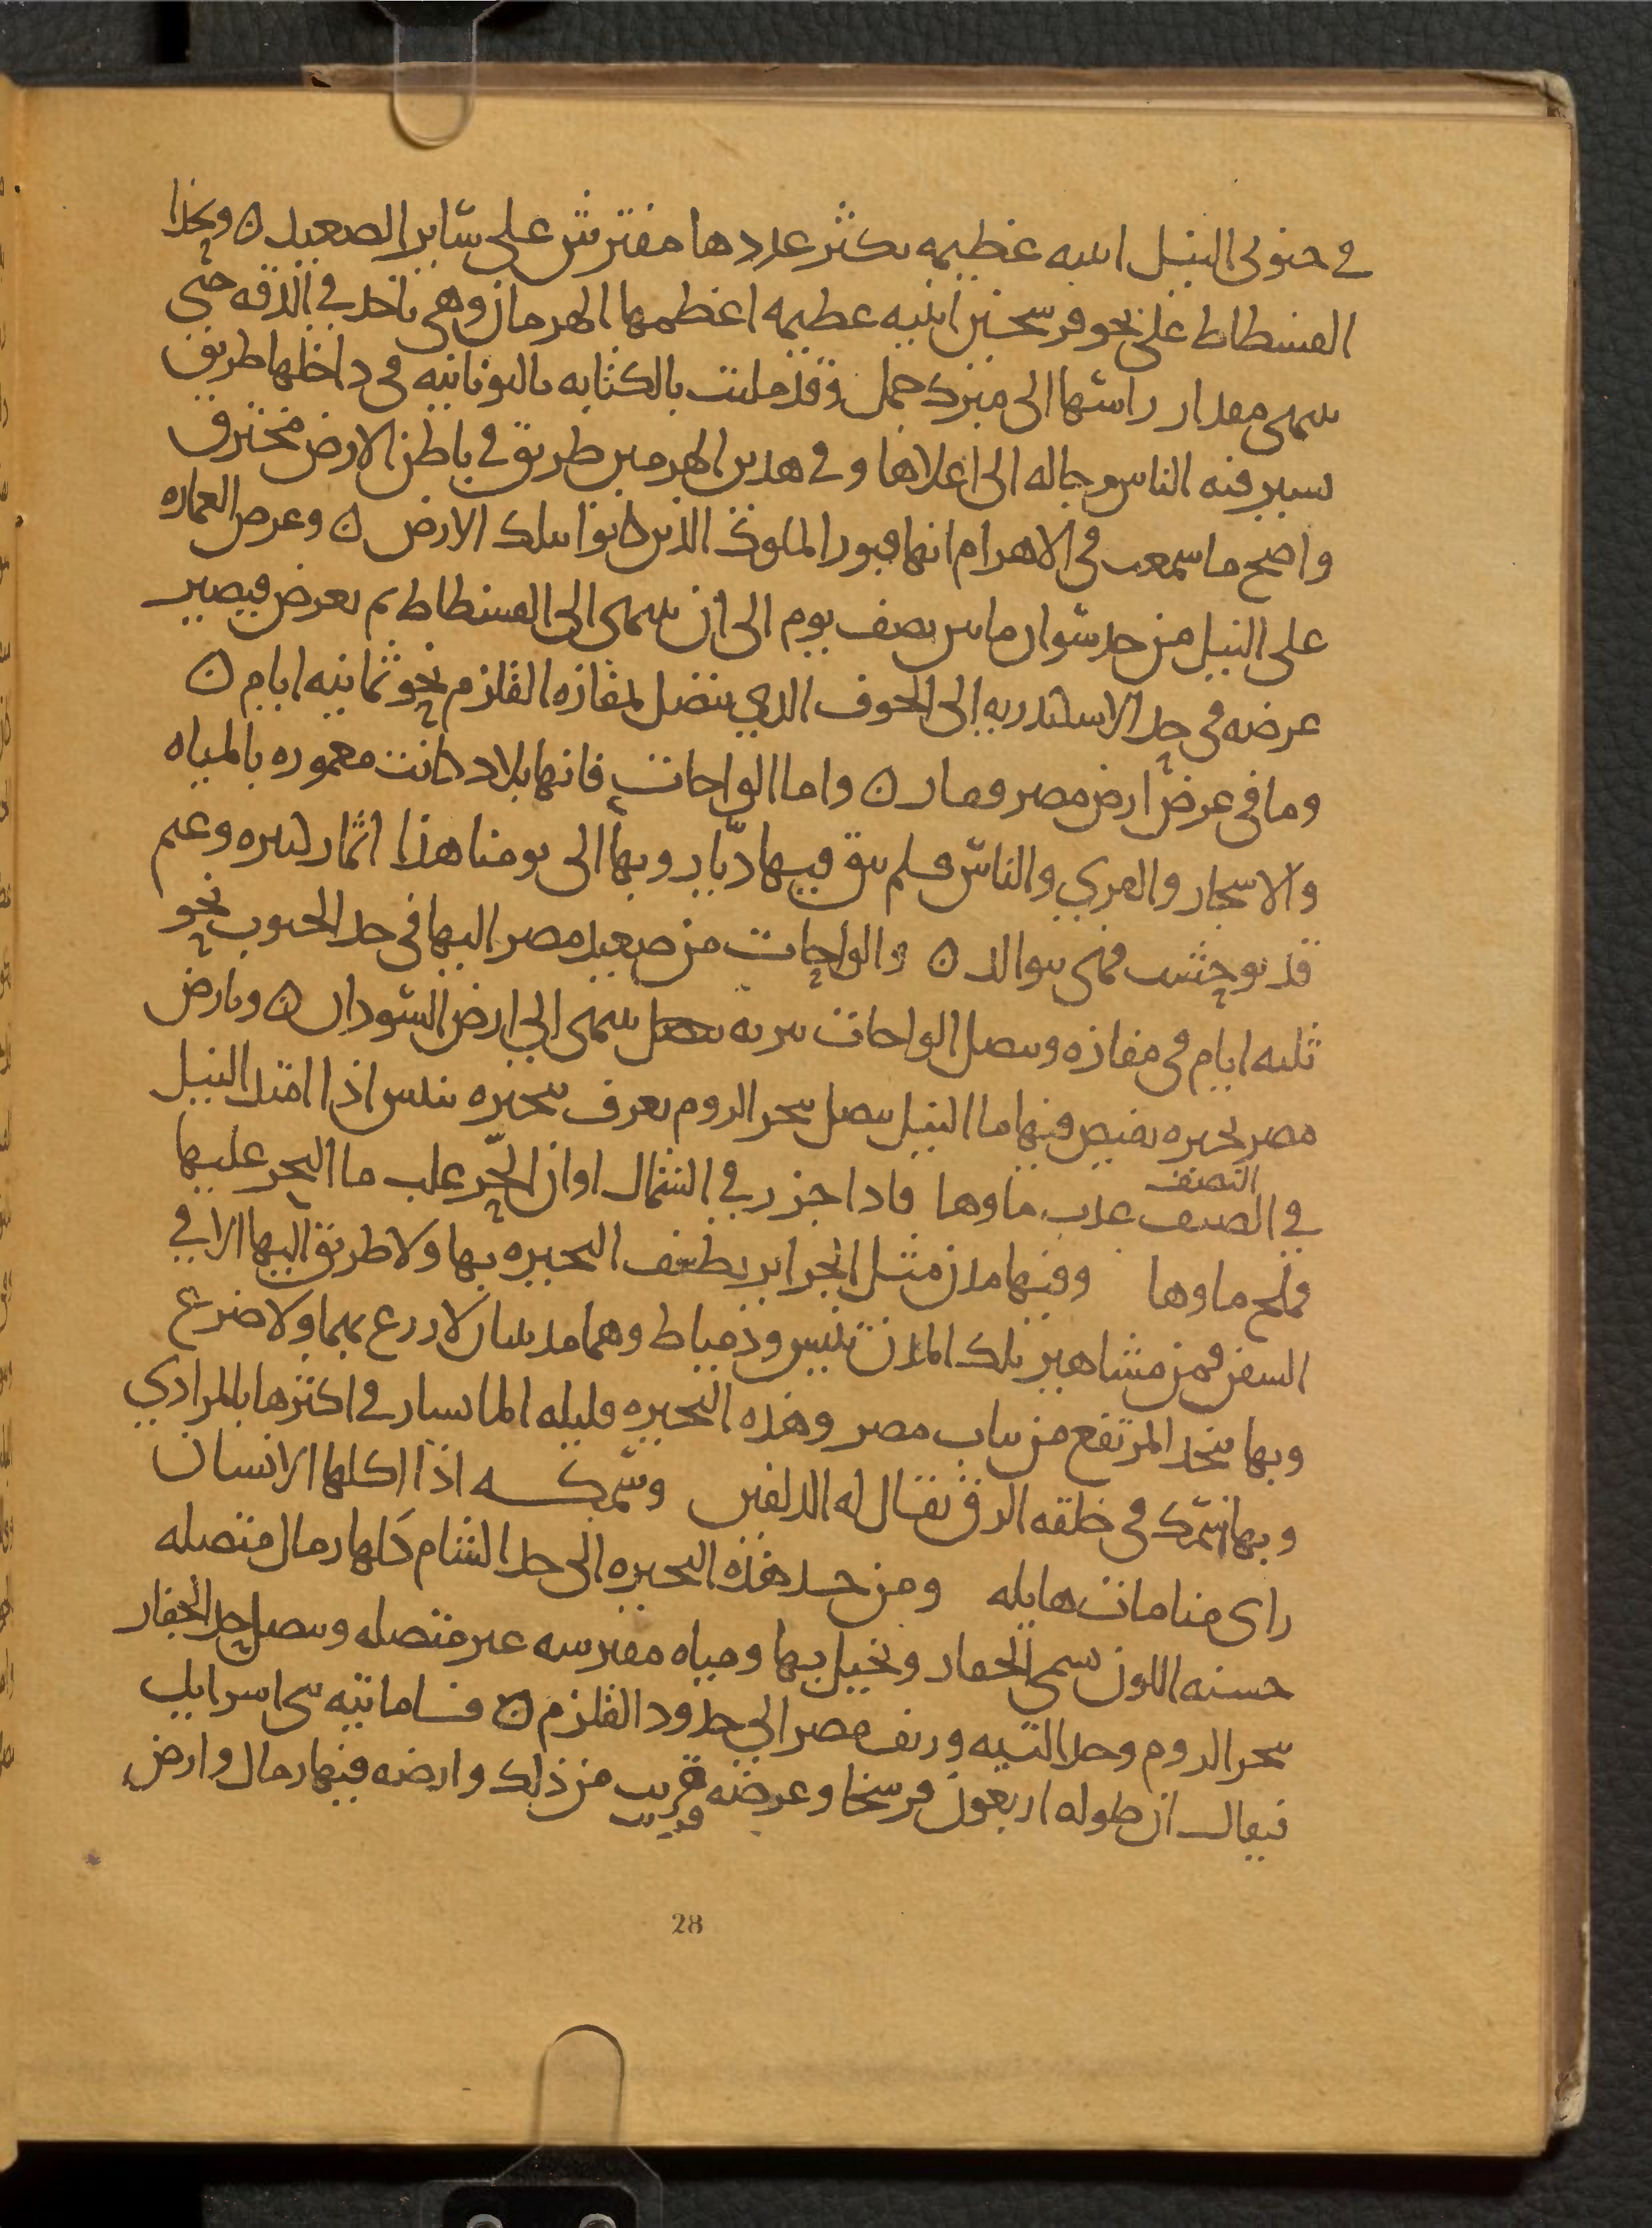 في جنوبي النيل ابنيه عظيمه يكثر عددها مفترش على سائر الصعيد ن وبحذا
الفسطاط على نحو فرسخين ابنيه عظيمه اعظمها الهرمان وهي تاخذ في الدقه حتى
ينتهي مقدار راسها الى مبرك جمل وقد ملئت بالكتابه باليونانيه في داخلها طريق
يسير فيه الناس رجاله الى اعلاها وفي هذين الهرمين طريق في باطن الارض مخترق
واصح ما سمعت في الاهرام انها قبور الملوك الذين كانوا بتلك الارض ن وعرض العماره
على النيل من حد سوان ما بين نصف يوم الى ان ينتهي الى الفسطاط ثم يعرض فيصير
عرضه في حد الاسكندريه الى الحوف الذي يتصل لمفازه القلزم نحو ثمانيه ايام ن
وما في عرض ارض مصر وقفار ن واما الواحات فانها بلاد كانت معموره بالمياه
والاشجار والقري والناس فلم يبق فيها ديار وبها الى يومنا هذا اثمار كثيره وغنم
قد توحشت فهي تتوالد ن والواحات من صعيد مصر اليها في حد الجنوب نحو
ثلثه ايام في مفازه ويتصل الواحات ببريه تتصل ينتهي الى ارض السودان ن وبارض
مصر بحيره يفيض فيها ما النيل يتصل ببحر الروم يعرف ببحيره تنيس اذا امتد النيل
في الصيف النصيف عذب ماوها فاذا جزر في الشتا الى اوان الحر غلب ما البحر عليها
فملح ماوها وفيها مدن مثل الجزاير يطيف البحيره بها ولا طريق اليها الا في
السفن فمن مشاهير تلك المدن تنيس ودمياط وهما مدينتان لا زرع بهما ولا ضرع
وبها يتخذ المرتفع من ثياب مصر وهذه البحيره قليله الما يسار في اكثرها بالمرادي
وبها سمك في خلقه الزق يقال له الدلفين وسمكه اذا اكلها الانسان
راى منامات هايله ومن حد هذه البحيره الى حد الشام كلها رمال متصله
حسنه اللون يسمى الجفار ونخيل بها ومياه مفترشه غير متصله ويتصل حد الجفار
ببحر الروم وحد التيه وريف مصر الى حدود القلزم ن فاما تيه بني اسرايل
فيقال ان طوله اربعون فرسخا وعرضه قريب قريب من ذلك وارضه فيها رمال وارض
28